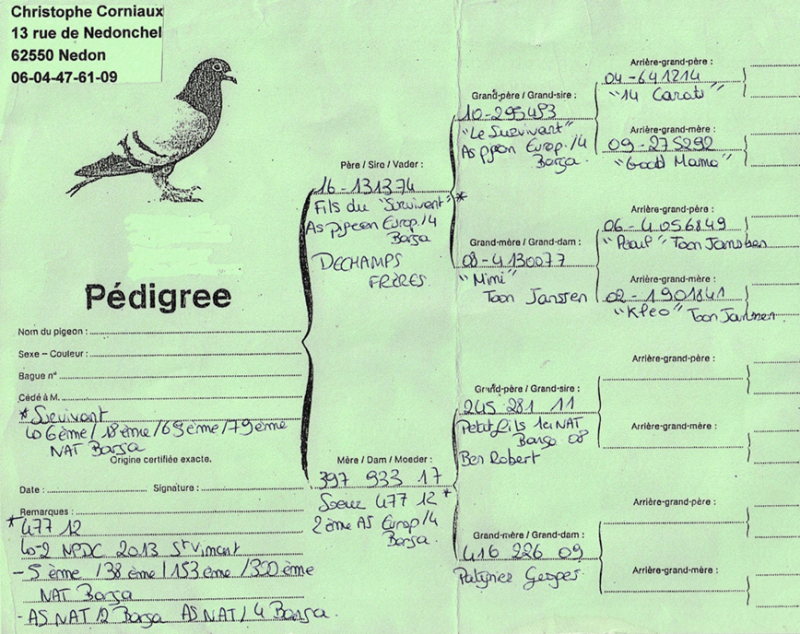 Christophe Corniaux
13 rue de Nedonchel
62550 Nedon
06-04-47-61-09
Pédigree
Nom du pigeon :
Sexe – Couleur :
Bague n°
Cédé à M.
* Survivant
6ème / 18ème / 69ème / 79ème
NAT Barça
Origine certifiée exacte.
Date : Signature :
Remarques :
* 477 12
2 NPDC 2013 St Vincent
- 5 ème / 38 ème / 153 ème / 300 ème
NAT Barça
- AS NAT / 2 Barça AS NAT / 4 Barça.
Père / Sire / Vader :
16-131374
Fils du "Survivant" *
As pigeon Europ. /4
Barça
DECHAMPS
FRÈRES.
Mère / Dam / Moeder :
397 933 17
Soeur 477 12 *
2ème AS Europ /4
Barça.
Grand-père / Grand-sire :
10-295483
"Le Survivant"
As pigeon Europ. /4
Barça.
Grand-mère / Grand-dam :
08-4130077
"Mimi"
Toon Janssen
Grand-père / Grand-sire :
245 281 11
Petit fils 1er NAT
Barça 08
Ben Robert
Grand-mère / Grand-dam :
416 226 09
Georges
Arrière-grand-père :
04-641214
"14 Carats"
Arrière-grand-mère :
09-275292
"Good Mama"
Arrière-grand-père :
06-4056849
Toon Janssen
Arrière-grand-mère :
02-1901841
"Kleo" Toon Janssen.
Arrière-grand-père :
Arrière-grand-mère :
Arrière-grand-père :
Arrière-grand-mère :